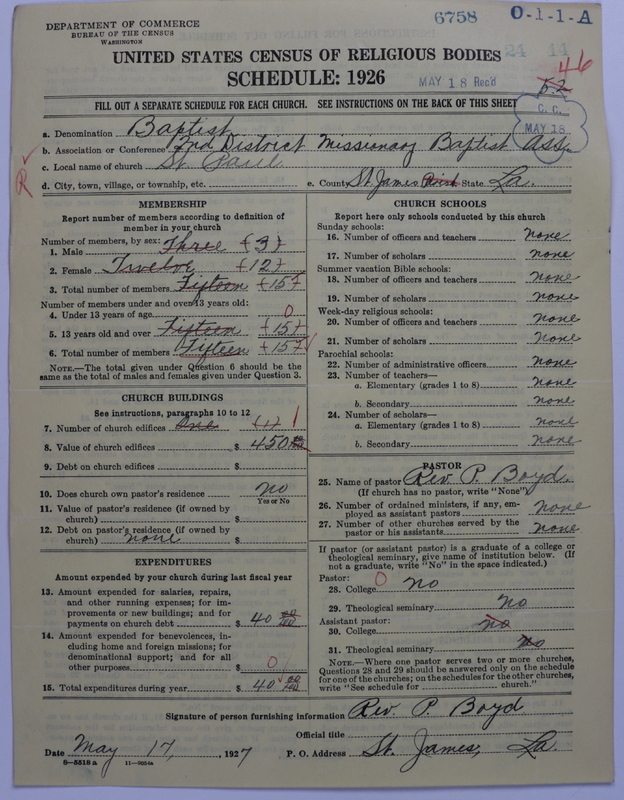 DEPARTMENT OF COMMERCE
BUREAU OF THE CENSUS
WASHINGTON
6758 O-1-1-A
24 14
UNITED STATES CENSUS OF RELIGIOUS BODIES
SCHEDULE: 1926
MAY 18 Rec'd
46
5.2
FILL OUT A SEPARATE SCHEDULE FOR EACH CHURCH. SEE INSTRUCTIONS ON THE BACK OF THIS SHEET
C. C.
MAY 18
a. Denomination Baptist
b. Association or Conference 2nd District Missionary Baptist Ass.
c. Local name of church St. Paul
R
d. City, town, village, or township, etc. e. County St. James Parish State La.
MEMBERSHIP
Report number of members according to definition of
member in your church
Number of members, by sex:
1. Male Three (3)
2. Female Twelve (12)
3. Total number of members Fifteen (15)
Number of members under and over 13 years old:
4. Under 13 years of age 0
5. 13 years old and over Fifteen (15)
6. Total number of members Fifteen (15)
NOTE.—The total given under Question 6 should be
same as the total of males and females given under Question 3.
CHURCH BUILDINGS
See instructions, paragraphs 10 to 12
7. Number of church edifices One (1) 1
8. Value of church edifices $ 450
9. Debt on church edifices $
10. Does church own pastor's residence No
Yes or No
11. Value of pastor's residence (if owned by
church) $
12. Debt on pastor's residence (if owned by
church) none $
EXPENDITURES
Amount expended by your church during last fiscal year
13. Amount expended for salaries, repairs,
and other running expenses; for im-
provements or new buildings; and for
payments on church debt $ 40 00/100
14. Amount expended for benevolences, in-
cluding home and foreign missions; for
denominational support; and for all
other purposes $ 0
15. Total expenditures during year $ 40 00/100
CHURCH SCHOOLS
Report here only schools conducted by this church
Sunday schools:
16. Number of officers and teachers none
17. Number of scholars none
Summer vacation Bible schools:
18. Number of officers and teachers none
19. Number of scholars none
Week-day religious schools:
20. Number of officers and teachers none
21. Number of scholars none
Parochial schools:
22. Number of administrative officers none
23. Number of teachers—
a. Elementary (grades 1 to 8) none
b. Secondary none
24. Number of scholars—
a. Elementary (grades 1 to 8) none
b. Secondary none
PASTOR
25. Name of pastor Rev. P. Boyd
(If church has no pastor, write "None")
26. Number of ordained ministers, if any, em-
ployed as assistant pastors none
27. Number of other churches served by the
pastor or his assistants none
If pastor (or assistant pastor) is a graduate of a college or
theological seminary, give name of institution below. (If
not a graduate, write "No" in the space indicated.)
Pastor:
28. College 0 no
29. Theological seminary no
Assistant pastor:
30. College no
31. Theological seminary no
NOTE.—Where one pastor serves two or more churches,
Questions 28 and 29 should be answered only on the schedule
for one of the churches; on the schedules for the other churches,
write "See schedule for church."
Signature of person furnishing information Rev. P Boyd
Official title
Date May 17, 1927 P. O. Address St. James, La.
8-5518 a 11-9064a